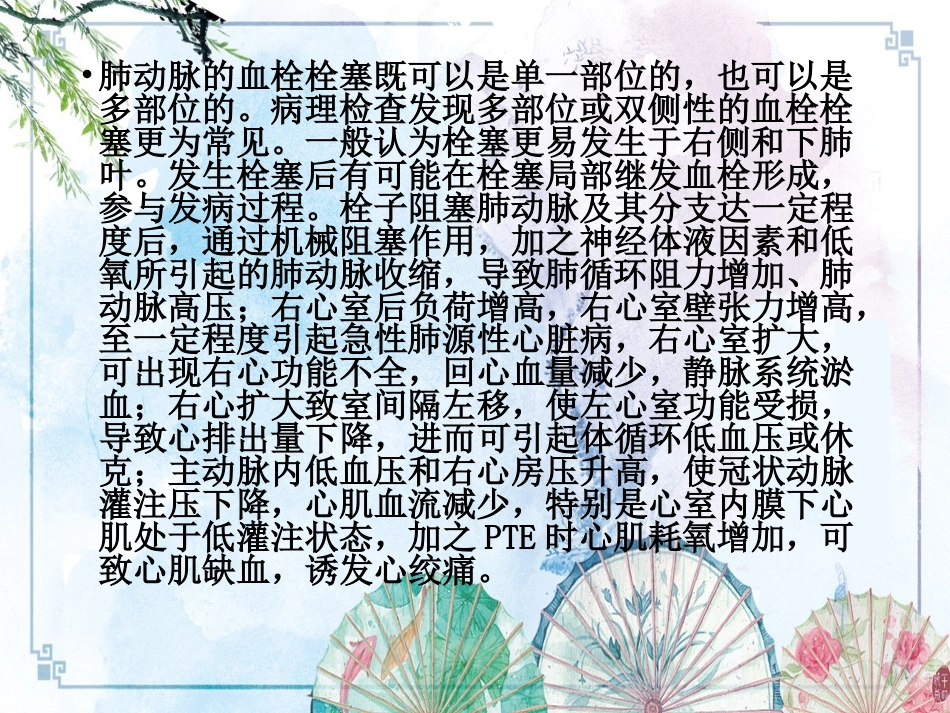 •肺动脉的血栓栓塞既可以是单一部位的，也可以是
多部位的。病理检查发现多部位或双侧性的血栓栓
塞更为常见。一般认为栓塞更易发生于右侧和下肺
叶。发生栓塞后有可能在栓塞局部继发血栓形成，
参与发病过程。栓子阻塞肺动脉及其分支达一定程
度后，通过机械阻塞作用，加之神经体液因素和低
氧所引起的肺动脉收缩，导致肺循环阻力增加、肺
动脉高压；右心室后负荷增高，右心室壁张力增高，
至一定程度引起急性肺源性心脏病，右心室扩大，
可出现右心功能不全，回心血量减少，静脉系统淤
血；右心扩大致室间隔左移，使左心室功能受损，
导致心排出量下降，进而可引起体循环低血压或休
克；主动脉内低血压和右心房压升高，使冠状动脉
灌注压下降，心肌血流减少，特别是心室内膜下心
肌处于低灌注状态，加之 PTE 时心肌耗氧增加，可
致心肌缺血，诱发心绞痛。